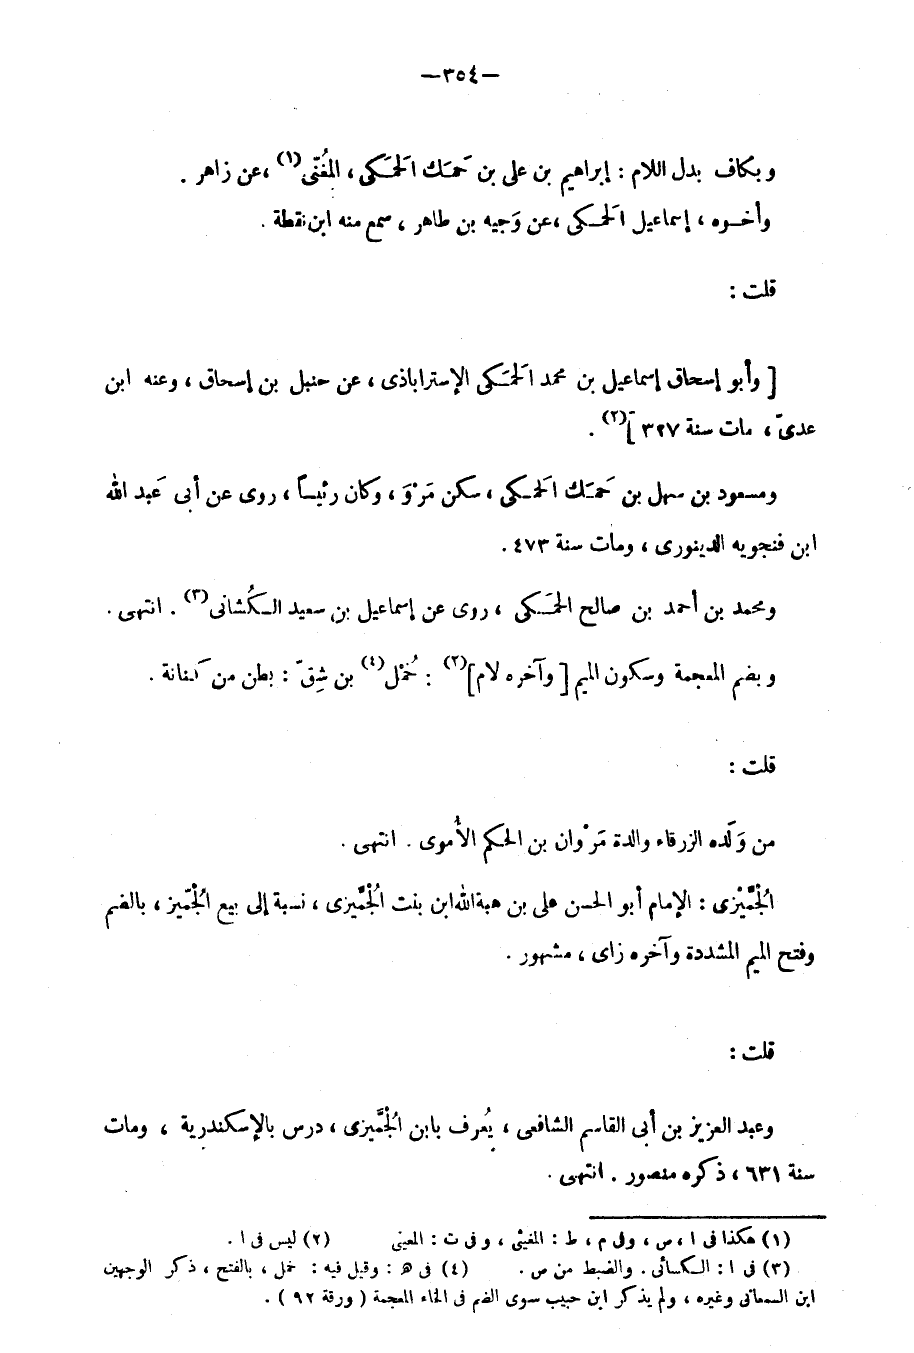 —٣٥٤—
وبكاف بدل اللام : إبراهيم بن على بن حَمَك الحَمَكى ، المُفتّى(١) ، عن زاهر .
وأخوه ، إسماعيل الحَمَكى ، عن وَجيه بن طاهر ، سمع منه ابن نقطة .
قلت :
[ وأبو إسحاق إسماعيل بن محمد الحَمَكى الإستراباذى ، عن حنبل بن إسحاق ، وعنه ابن
عدىّ ، مات سنة ٣٢٧ ](٢) .
ومسعود بن سهل بن حَمَك الحَمَكى ، سكن مَرْوَ ، وكان رئيساً ، روى عن أبى عَبد الله
ابن فنجويه الدينورى ، ومات سنة ٤٧٣ .
ومحمد بن أحمد بن صالح الحَمَكى ، روى عن إسماعيل بن سعيد الكُشانى(٣) . انتهى .
وبضم المعجمة وسكون الميم [ وآخره لام ](٢) : خُمْل(٤) بن شِقّ : بطن من كنانة .
قلت :
من وَلَده الزرقاء والدة مَرْوان بن الحكم الأُموى . انتهى .
الجُمَّيْزى : الإمام أبو الحسن على بن هبة الله ابن بنت الجُمَّيزى ، نسبة إلى بيع الجُمّيز ، بالضم
وفتح الميم المشددة وآخره زاى ، مشهور .
قلت :
وعبد العزيز بن أبى القاسم الشافعى ، يُعرف بابن الجُمَّيزى ، درس بالإسكندرية ، ومات
سنة ٦٣١ ، ذكره منصور . انتهى .
(١) هكذا فى ا ، ص ، وفى م ، ط : المغيثى ، وفى ت : المعينى (٢) ليس فى ا .
(٣) فى ا : الكسائى . والضبط من ص . (٤) فى هـ : وقيل فيه : خمل ، بالفتح ، ذكر الوجهين
ابن السمعانى وغيره ، ولم يذكر ابن حبيب سوى الضم فى الخاء المعجمة ( ورقة ٩٢ ) .